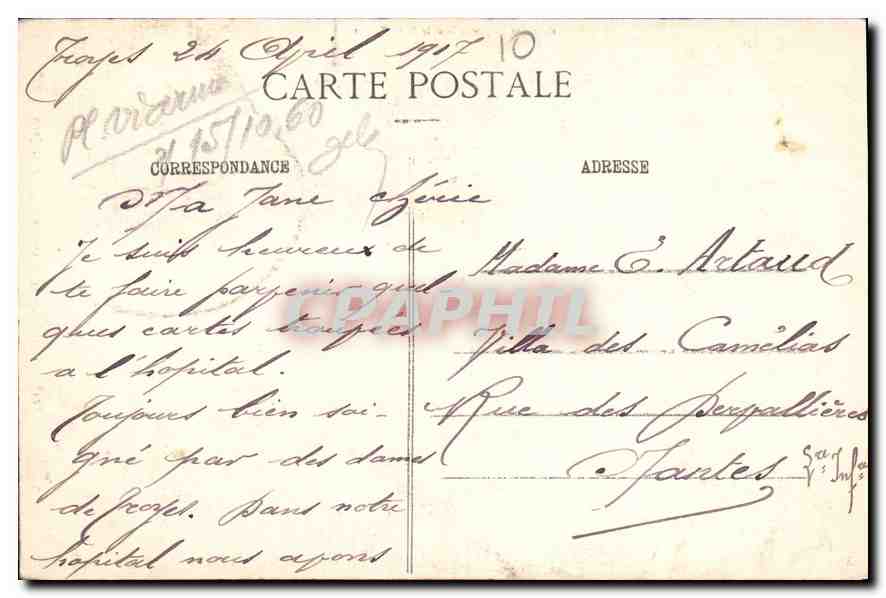 Troyes 24 April 1917
10
CARTE POSTALE
15/10.60
CORRESPONDANCE
Ma Jane chérie
Je suis heureux de
te faire parvenir quel
ques cartes trouvées
a l'hopital.
Toujours bien soi-
gné par des dames
de Troyes. Dans notre
hôpital nous avons
ADRESSE
Madame E. Artaud
Villa des Camélias
Rue des Dervallières
Nantes Lre Infre
CPAPHIL